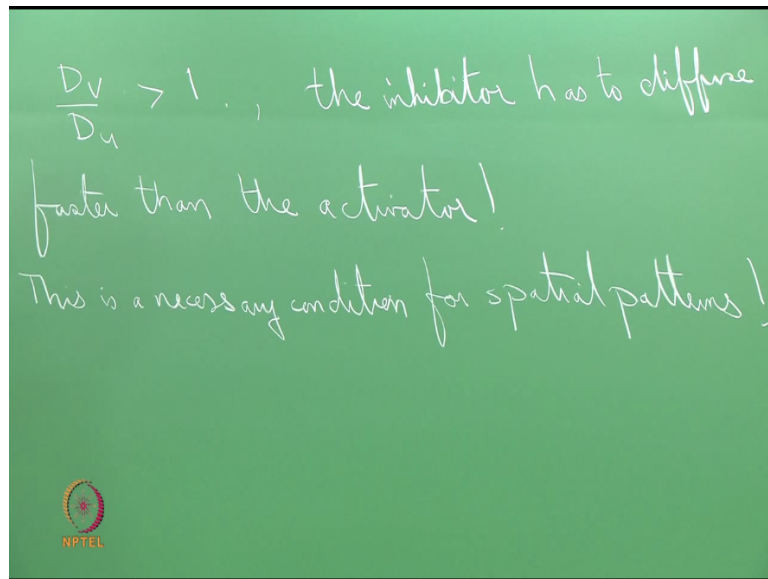 Dv/Du > 1., the inhibitor has to diffuse
faster than the activator!
This is a necessary condition for spatial patterns!
NPTEL